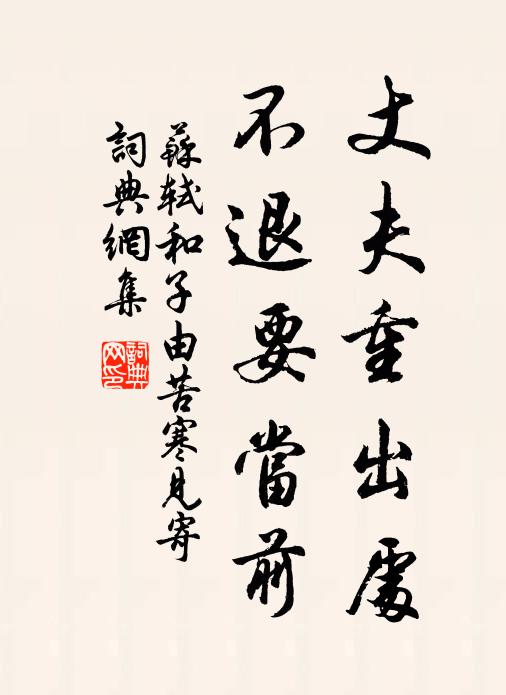 丈夫重出處
不退要當前
蘇軾和子由苦寒見寄
詞典網集
詞典网印